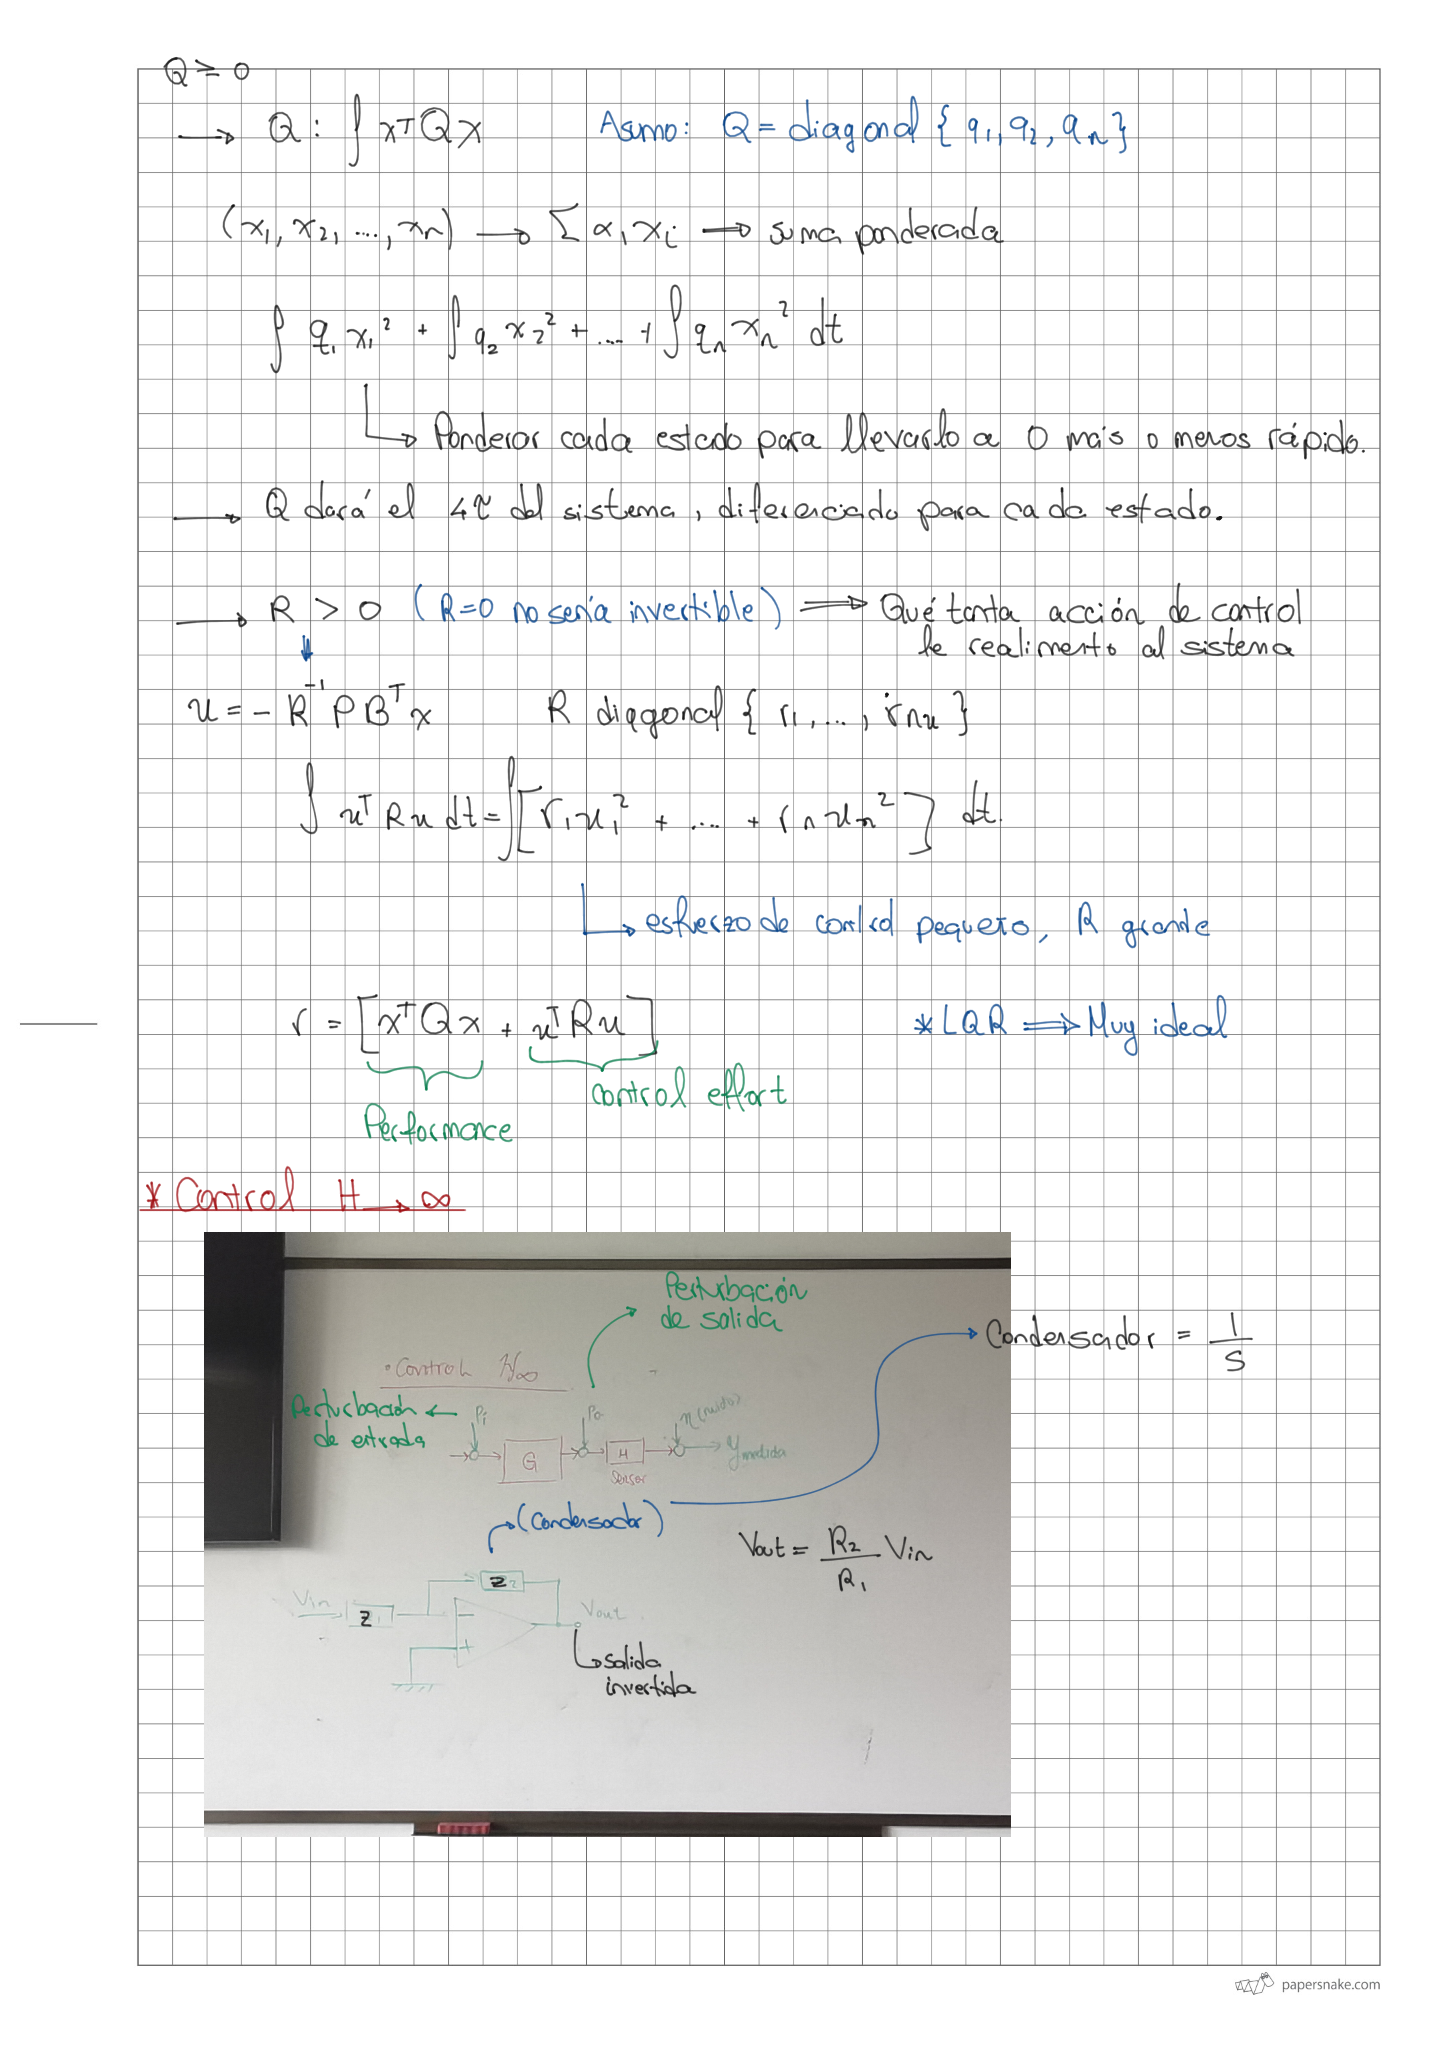 Q ≥ 0
→ Q : ∫ xᵀQx Asumo: Q = diagonal { q₁, q₂, qₙ }
(x₁, x₂, ...., xₙ) → Σ α₁ xᵢ ⟹ suma ponderada
∫ q₁ x₁² + ∫ q₂ x₂² + .... + ∫ qₙ xₙ² dt
↳ Ponderar cada estado para llevarlo a 0 más o menos rápido.
→ Q dará el 4τ del sistema, diferenciado para cada estado.
→ R > 0 (R=0 no sería invertible) ⟹ Qué tanta acción de control
le realimento al sistema
u = - R⁻¹ P Bᵀ x R diagonal { r₁, ..., rₙᵤ }
∫ uᵀ R u dt = ∫ [ r₁u₁² + .... + rₙ uₙ² ] dt.
↳ esfuerzo de control pequeño, R grande
r = [ xᵀQx + uᵀRu ] * LQR ⟹ Muy ideal
control effort
Performance
* Control H → ∞
Perturbación
de salida
Condensador = 1/s
• Control H∞
Perturbación ← Pi Po n (ruido)
de entrada
G H y medida
Sensor
(Condensador)
Vout = R₂/R₁ Vin
Z₂
Vin Z₁ − Vout
+
↳ salida
invertida
papersnake.com